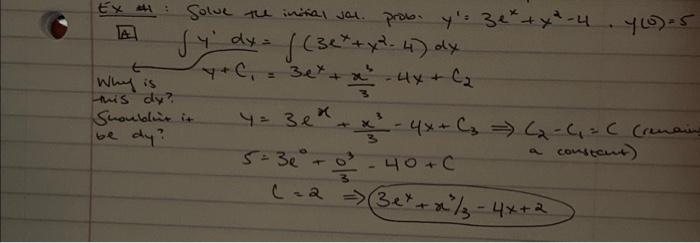 Ex #1: Solve the initial val. prob. y' = 3eˣ + x² - 4 . y(0) = 5
A
∫ y' dx = ∫ (3eˣ + x² - 4) dx
y + C₁ = 3eˣ + x³/3 - 4x + C₂
Why is
this dx?
Shouldn't it
be dy?
y = 3eˣ + x³/3 - 4x + C₃ ⇒ C₂ - C₁ = C (remains
a constant)
5 = 3e⁰ + 0³/3 - 40 + C
C = 2 ⇒ 3eˣ + x³/3 - 4x + 2